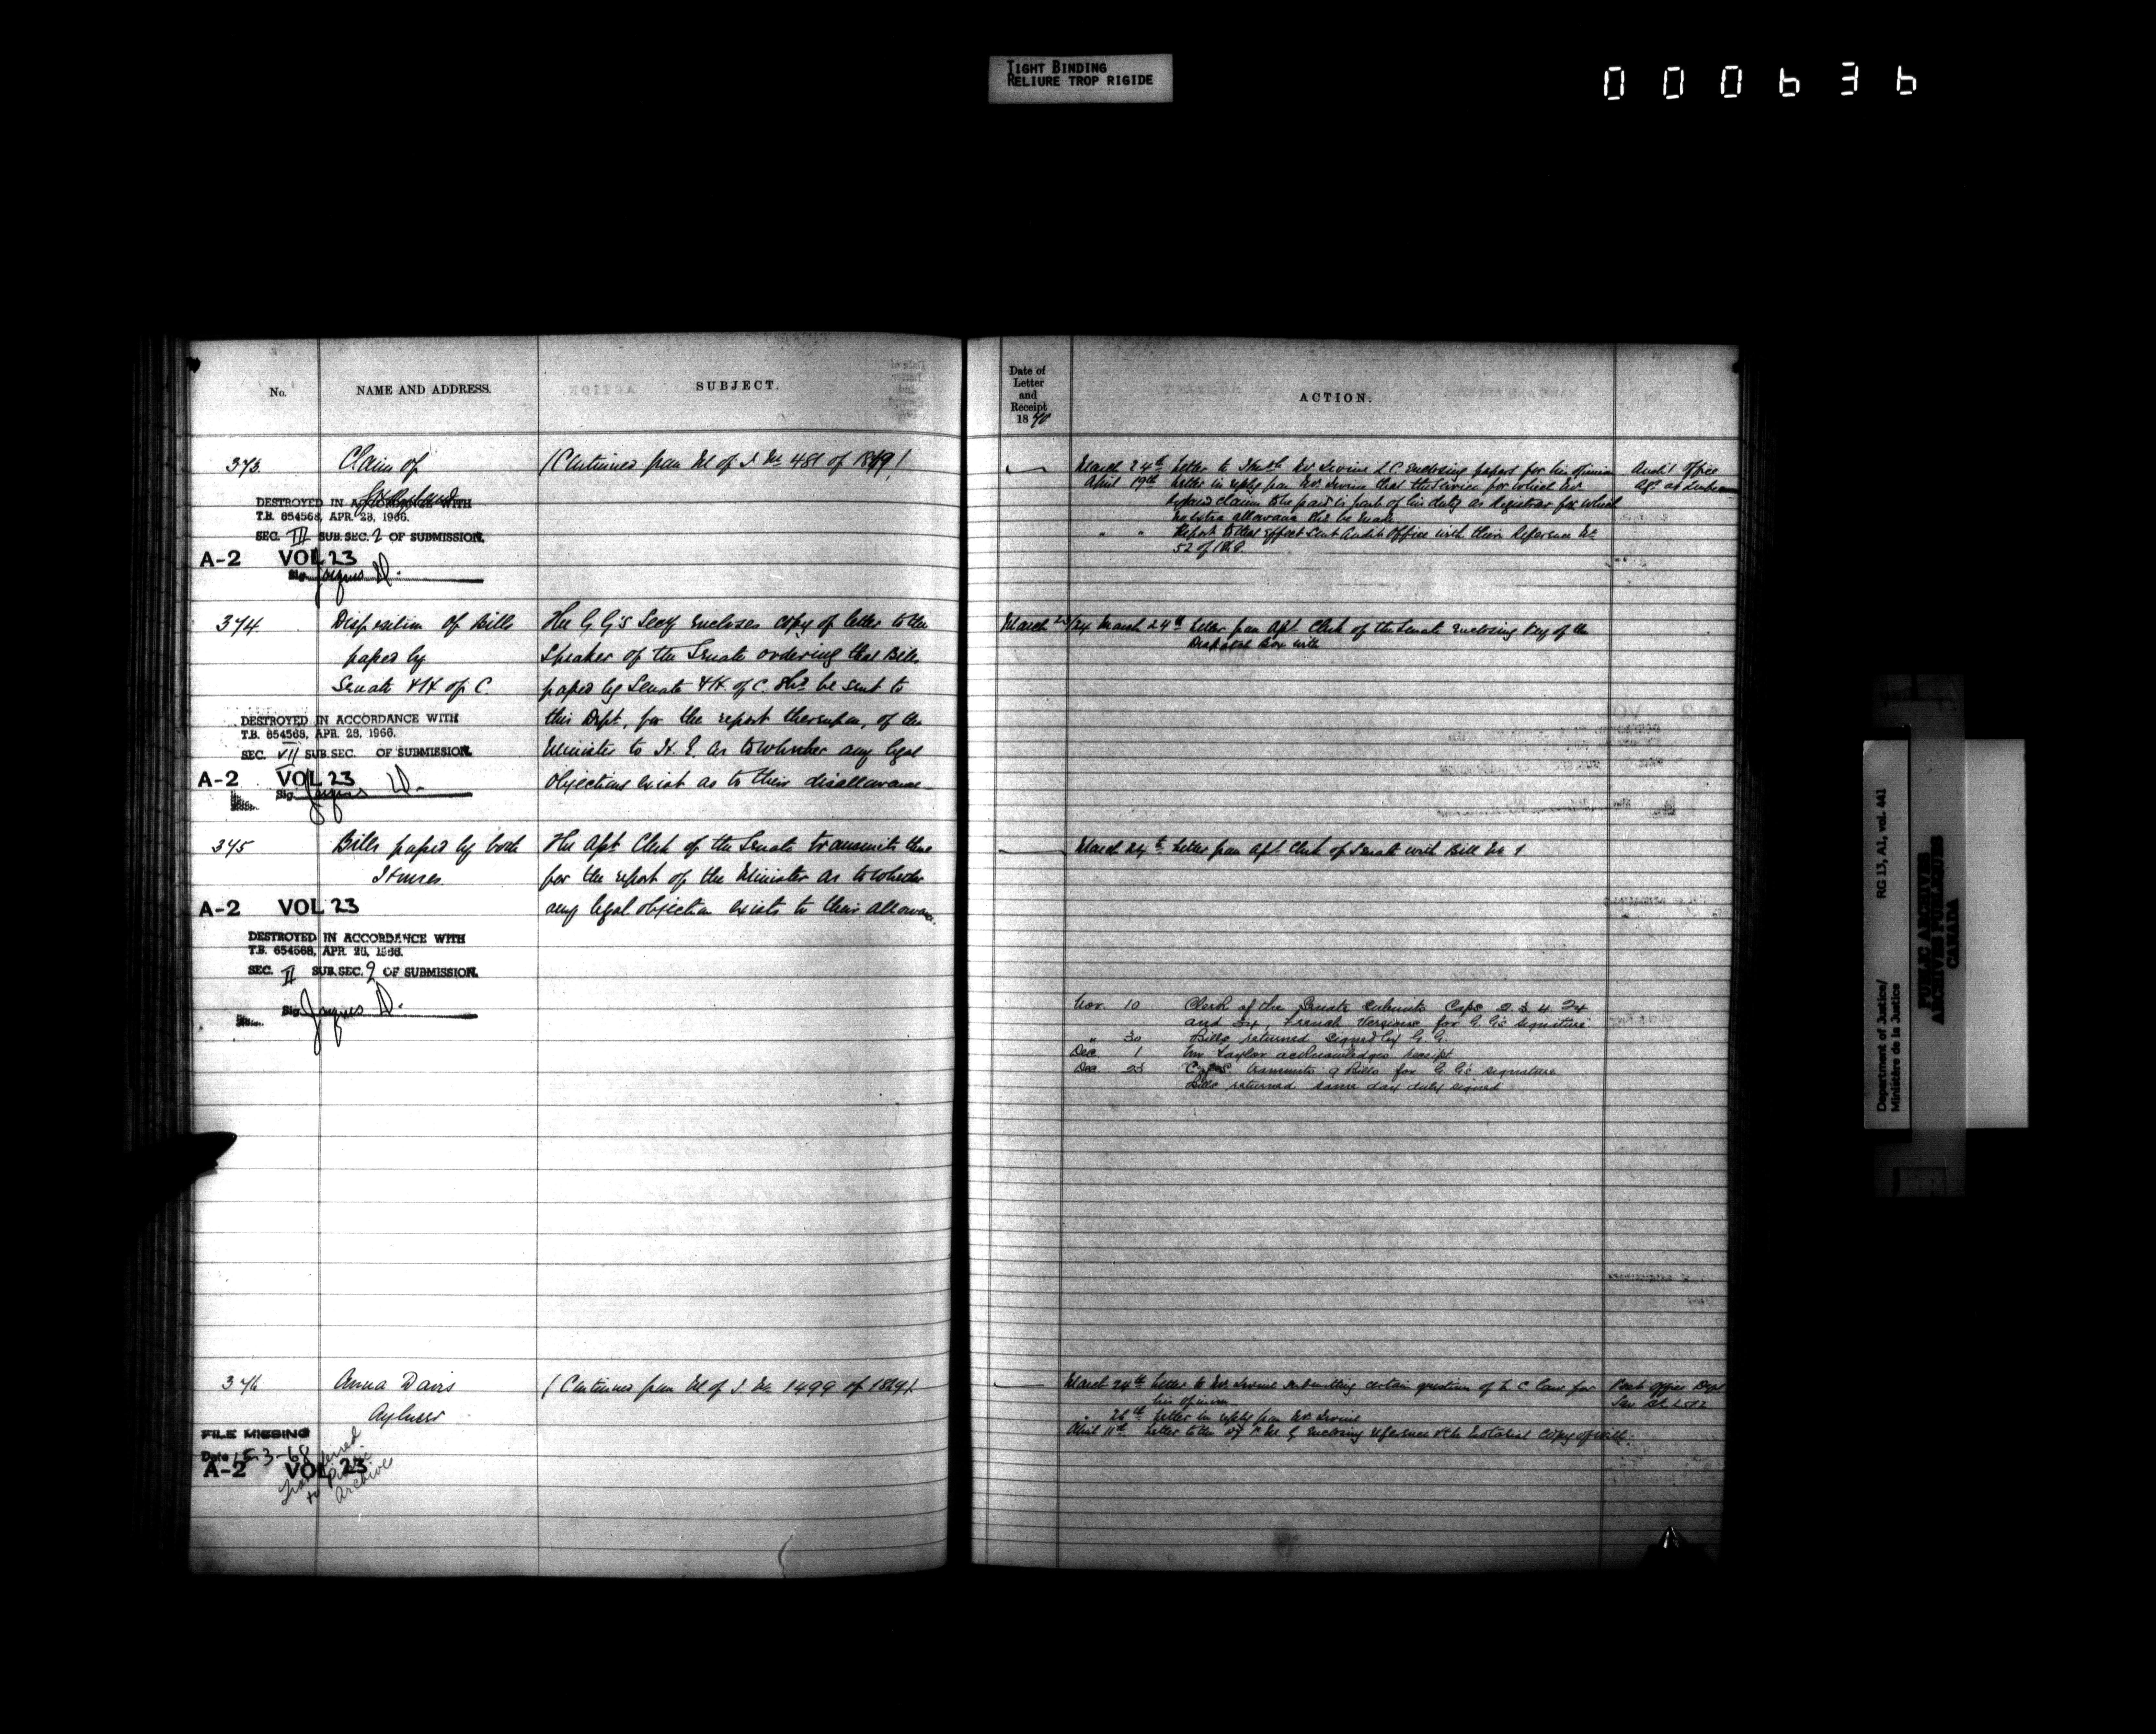 TIGHT BINDING
RELIURE TROP RIGIDE
000636
No.
NAME AND ADDRESS.
SUBJECT.
373
Claim of
(Continued from M of J. No 481 of 1869)
DESTROYED IN ACCORDANCE WITH
T.B. 654568, APR. 28, 1966.
SEC. III SUB. SEC. 2 OF SUBMISSION.
A-2 VOL 23
Sig. Jacques D.
374
Disposition of Bills
passed by
Senate & H. of C.
The G. G's Secy encloses copy of letter to the
Speaker of the Senate ordering that Bills
passed by Senate & H. of C. shd be sent to
this Dept, for the report thereupon, of the
Minister to H. E. as to whether any legal
objections exist as to their disallowance
DESTROYED IN ACCORDANCE WITH
T.B. 654568, APR. 28, 1966.
SEC. VII SUB. SEC. OF SUBMISSION.
A-2 VOL 23
Sig. Jacques D.
375
Bills passed by both
Houses.
The Asst Clerk of the Senate transmits these
for the report of the Minister as to whether
any legal objection exists to their allowance.
A-2 VOL 23
DESTROYED IN ACCORDANCE WITH
T.B. 654568, APR. 28, 1966.
SEC. II SUB. SEC. 2 OF SUBMISSION.
Sig. Jacques D.
376
Anna Davis
Aylmer
(Continued from M of J. No 1499 of 1869).
FILE MISSING
Date 15-3-68
A-2 VOL 23
Transferred
to Public
Archives
Date of
Letter
and
Receipt
1870
ACTION.
March 24th Letter to Mr. Irvine Q.C. enclosing papers for his opinion
Audit Office
April 19th Letter in reply from Mr. Irvine that the service for which Mr.
claims to be paid is part of his duty as Registrar for which
no extra allowance shd be made
" " Report to that effect sent Audit Office with their Reference No
52 of 1868
March 23/24
March 24th Letter from Asst Clerk of the Senate enclosing key of the
Despatch Box with
March 24th Letter from Asst. Clerk of Senate with Bill No 1
Nov. 10 Clerk of the Senate submits Caps 2. 3. 4. 24
and French Versions for G. G's signature
" 30 Bills returned signed by G. G.
Dec. 1 Mr Taylor acknowledges receipt
Dec 23 C of S transmits 9 Bills for G. G's signature
Bills returned same day duly signed
March 24th Letter to Mr. Irvine submitting certain question of L. C. Law for
his opinion
Post Office Dept
" 26th Letter in reply from Mr Irvine
April 11th Letter to the P. M. G. enclosing reference & the Notarial Copy of will
Department of Justice/
Ministère de la Justice
RG 13, A1, vol. 441
PUBLIC ARCHIVES
ARCHIVES PUBLIQUES
CANADA